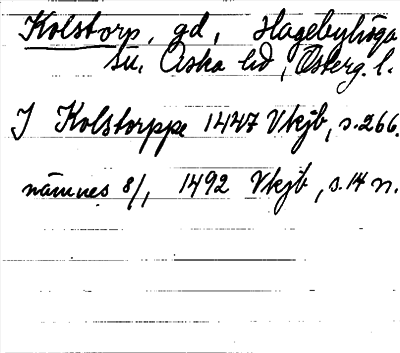 Kolstorp, gd, Hagebyhöga
sn, Aska hd, Österg. l.
I Kolstorppe 1447 Vkjb, s. 266.
nämnes 8/, 1492 Vkjb, s. 14 n.